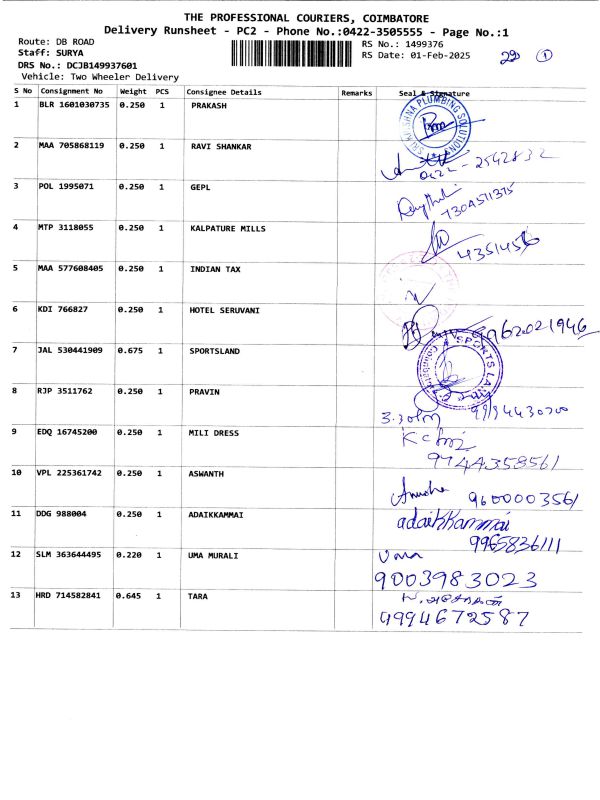 THE PROFESSIONAL COURIERS, COIMBATORE
Delivery Runsheet - PC2 - Phone No.:0422-3505555 - Page No.:1
Route: DB ROAD RS No.: 1499376
Staff: SURYA RS Date: 01-Feb-2025 29 1
DRS No.: DCJB149937601
Vehicle: Two Wheeler Delivery
S No Consignment No Weight PCS Consignee Details Remarks Seal & Signature
1 BLR 1601030735 0.250 1 PRAKASH
SRI KRISHNA PLUMBING SOLUTIONS
2 MAA 705868119 0.250 1 RAVI SHANKAR
0422-2542832
3 POL 1995071 0.250 1 GEPL
7304511375
4 MTP 3118055 0.250 1 KALPATURE MILLS
43514556
5 MAA 577608405 0.250 1 INDIAN TAX
6 KDI 766827 0.250 1 HOTEL SERUVANI
9762021946
7 JAL 530441909 0.675 1 SPORTSLAND
SPORTS LAND
8 RJP 3511762 0.250 1 PRAVIN
9994430700
9 EDQ 16745200 0.250 1 MILI DRESS
9744358561
10 VPL 225361742 0.250 1 ASWANTH
Anusha 9600003561
11 DDG 988004 0.250 1 ADAIKKAMMAI
adaikkammai
9965836111
12 SLM 363644495 0.220 1 UMA MURALI
Uma
9003983023
13 HRD 714582841 0.645 1 TARA
9994672587